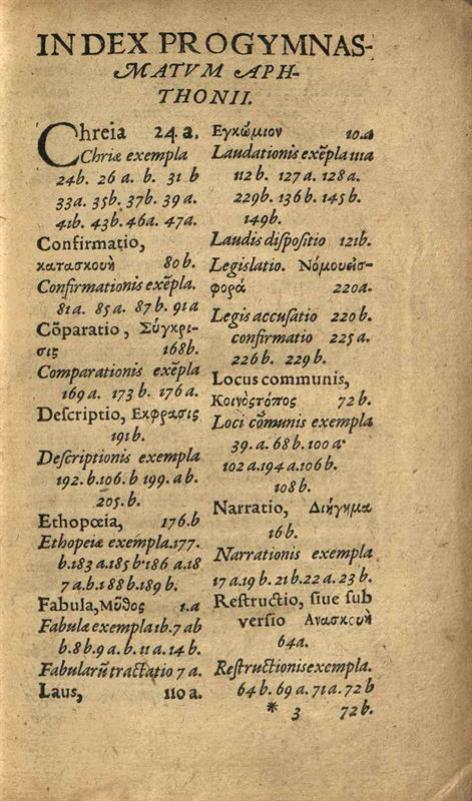 INDEX PROGYMNAS-
MATVM APH-
THONII.
Chreia 24 a.
Chriæ exempla
24b. 26 a. b. 31 b
33a. 35b. 37b. 39 a.
41b. 43b. 46a. 47a.
Confirmatio,
κατασκουὴ 80b.
Confirmationis exẽpla.
81a. 85a. 87b. 91a
Cõparatio, Σύγκρι-
σις 168b.
Comparationis exẽpla
169a. 173b. 176a.
Descriptio, Εκφρασις
191b.
Descriptionis exempla
192.b.106.b 199.ab.
205.b.
Ethopœia, 176.b
Ethopeiæ exempla.177.
b.183 a.185 b 186 a.18
7 a.b.188b.189b.
Fabula, Μῦθος 1.a
Fabulæ exempla 1b.7 ab
b.8b.9 a.b.11 a.14 b.
Fabularũ tractatio 7 a.
Laus, 110 a.
Εγκώμιον 10.a
Laudationis exẽpla 111a
112 b. 127 a. 128 a.
229b. 136 b. 145 b.
149b.
Laudis dispositio 121b.
Legislatio. Νόμουεισ-
φορά 220a.
Legis accusatio 220 b.
confirmatio 225 a.
226 b. 229 b.
Locus communis,
Κοινὸςτόπος 72 b.
Loci cõmunis exempla
39.a.68b.100 a.
102 a.194 a.106 b.
108 b.
Narratio, Διήγημα
16 b.
Narrationis exempla
17 a.19 b. 21 b.22 a. 23 b.
Restructio, siue sub
versio Ανασκευὴ
64a.
Restructionis exempla.
64 b. 69 a. 71 a. 72 b
* 3 72b.